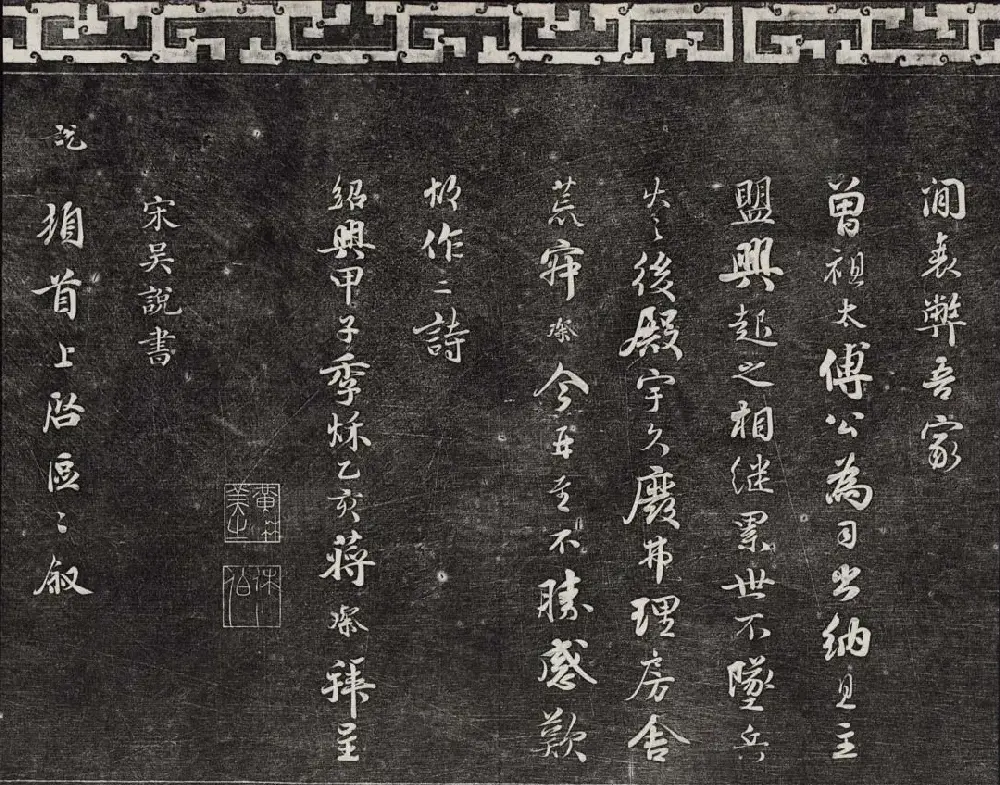 間衰弊吾家
曾祖太傅公為司出納見主
盟興起之相継累世不墜兵
火之後殿宇久廢弗理房舍
荒寂璨今再至不勝感歎
作二詩
紹興甲子季秋乙亥蔣璨拜呈
宋吳說書
說頓首上啓區〻敘